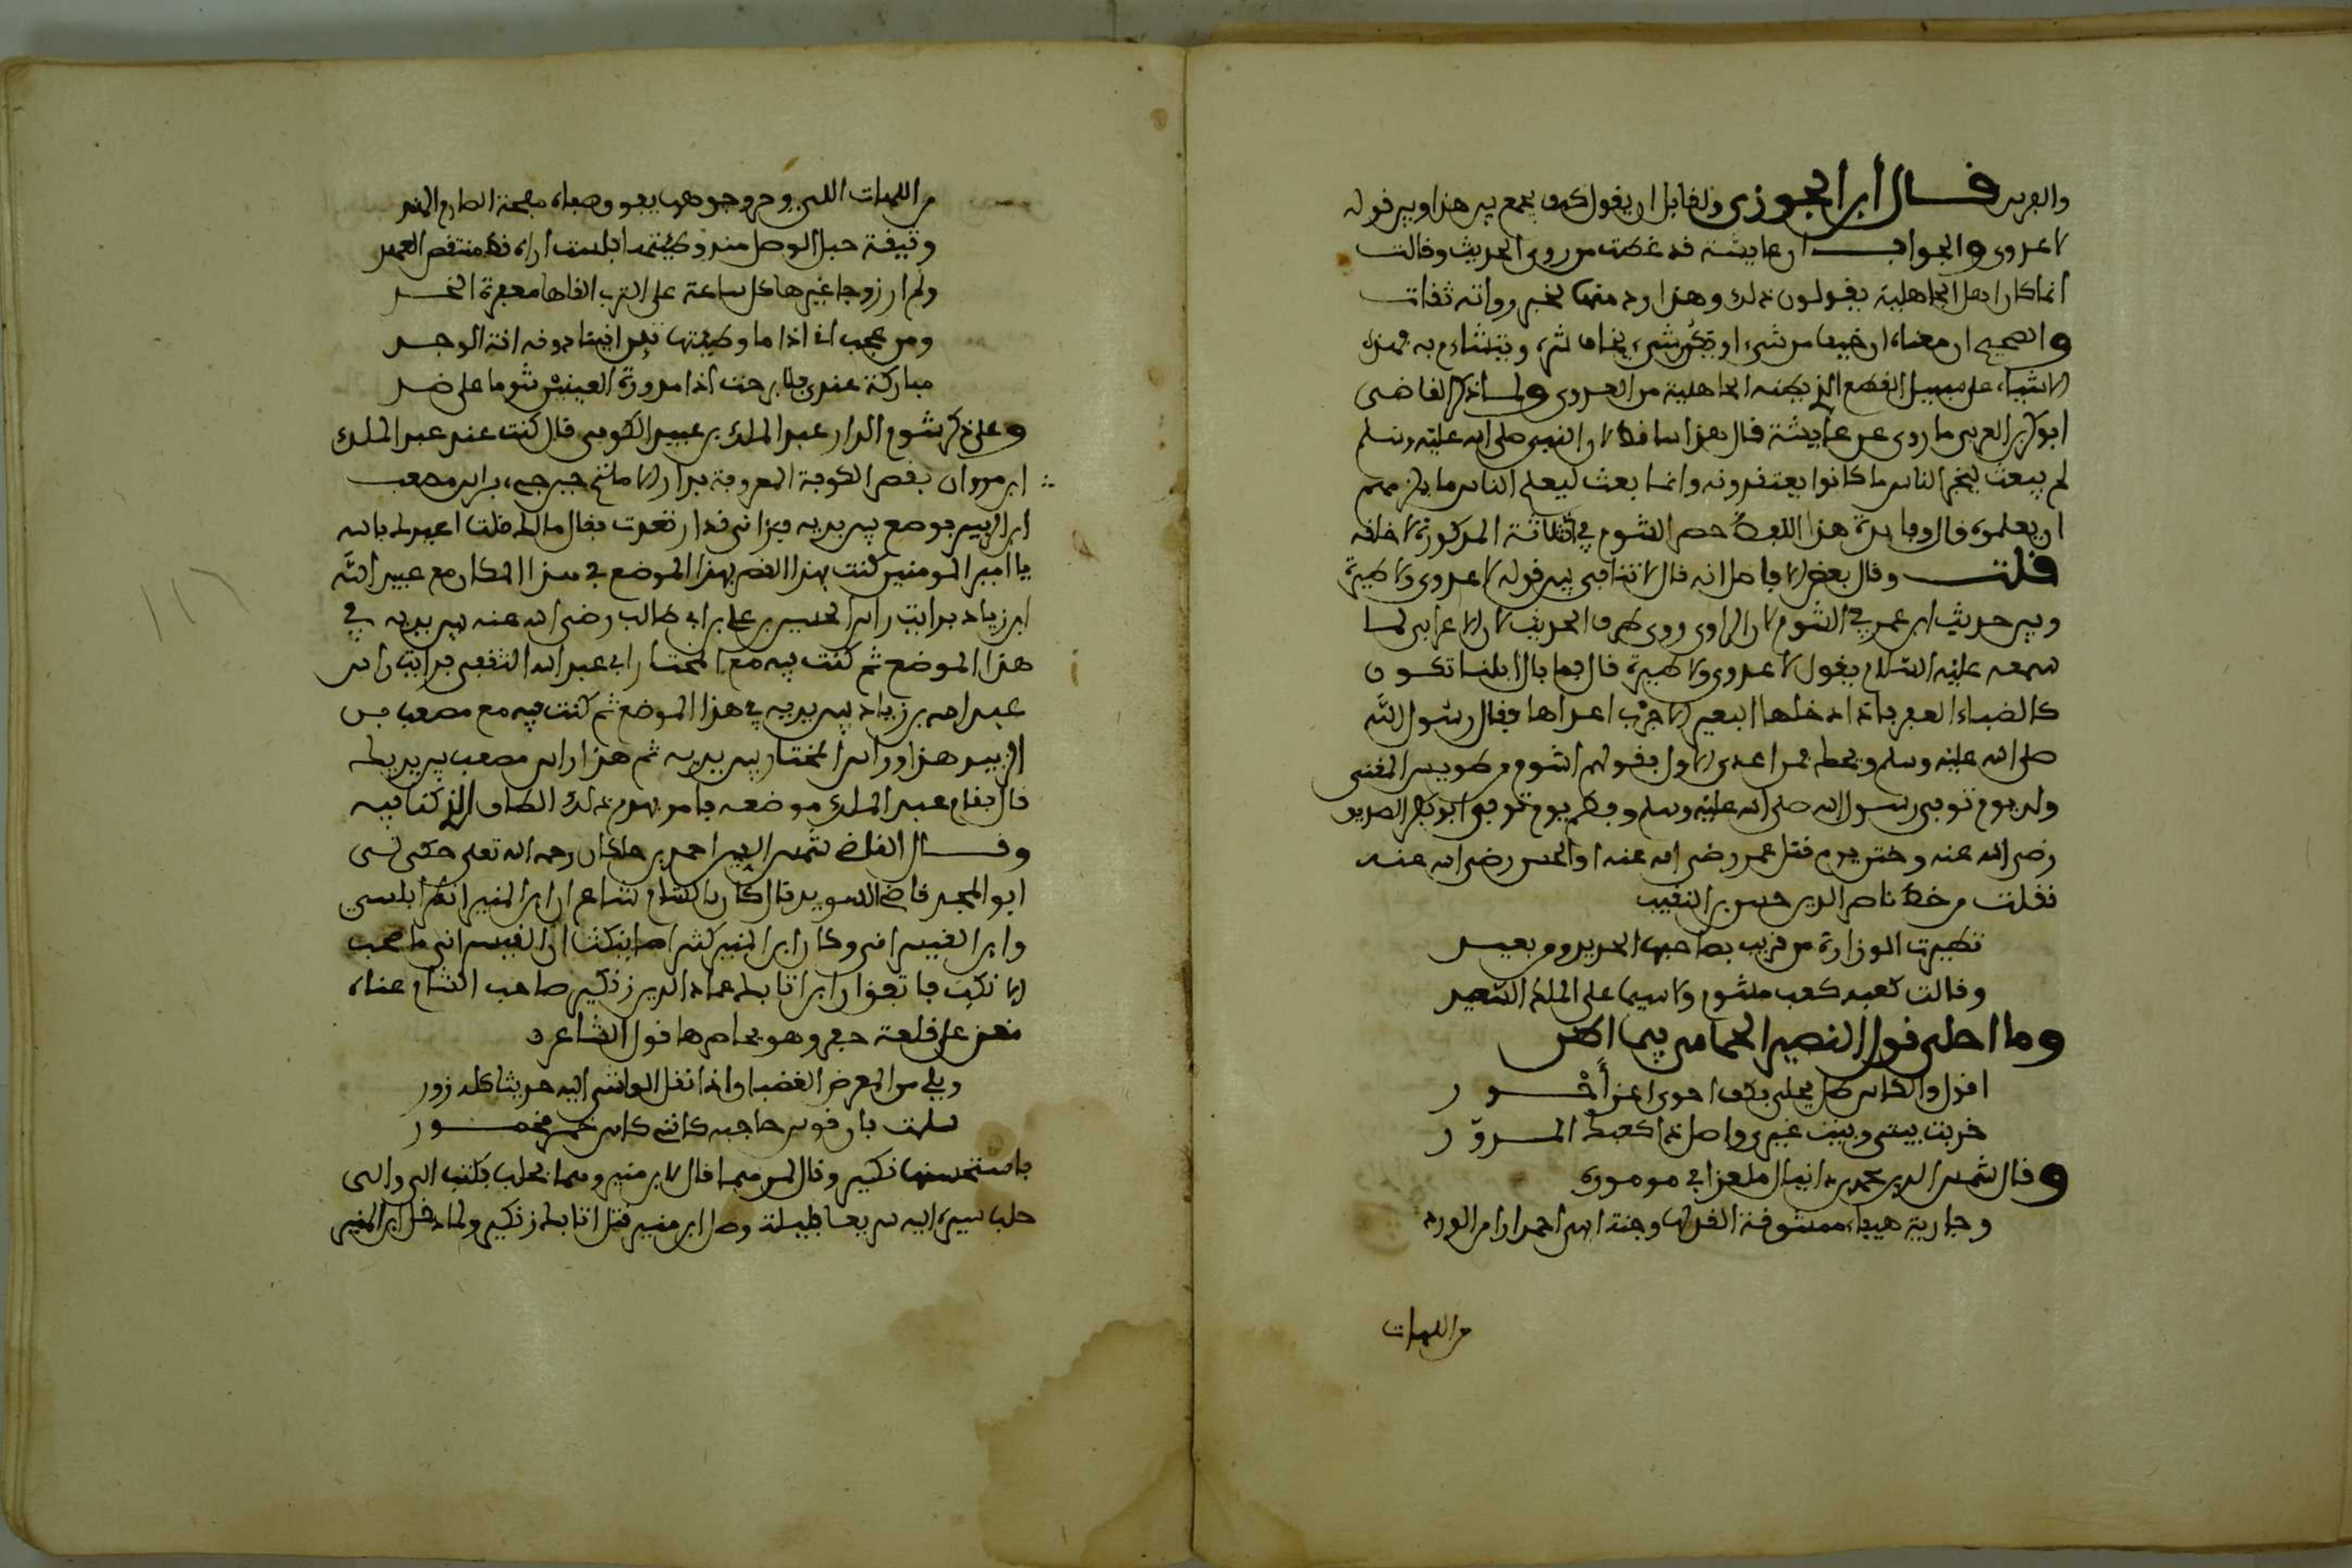 والفرس قال ابن الجوزي ولقائل ان يقول كيف يجمع بين هذا وبين قوله
لا عدوى والجواب ان عايشة قد غلطت من روى الحديث وقالت
انما كان اهل الجاهلية يقولون ذلك وهذا رد منها لخبر رواته ثقات
والصحيح ان معناه ان خيف من شيء او يكون شيء يخاف شره ويتشاءم به فهذه
الاشياء على سبيل القطع الذي يظنه الجاهلية من العدوى ولما ذكر القاضي
ابو بكر العربي ما روي عن عايشة قال هذا ساقط لان النبي صلى الله عليه وسلم
لم يبعث ليخبر الناس ما كانوا يعتقدونه وانما بعث ليعلم الناس ما يلزمهم
ان يعلموه قال وفايدة هذا اللفظ حصر الشوم في الثلاثة المذكورة لا خلقه
قلت وقال بعض الافاضل انه قال لا تنافي بين قوله لا عدوى ولا طيرة
وبين حديث ابن عمر في الشوم لان الراوي روى طرف الحديث لان الاعرابي لما
سمعه عليه السلام يقول لا عدوى ولا طيرة قال فما بال ابلنا تكون
كالضباء العفر فاذا دخلها البعير الاجرب اعداها فقال رسول الله
صلى الله عليه وسلم ويحك فمن اعدى الاول بقولهم اشوم من طويس المغني
ولد يوم توفي رسول الله صلى الله عليه وسلم وفطم يوم توفي ابو بكر الصديق
رضي الله عنه وختن يوم قتل عمر رضي الله عنه او الحسن رضي الله عنه
نقلت من خط ناصر الدين حسن بن النقيب
تطيرت الوزارة من قريب بصاحبها الجديد ومن بعيد
وقالت كعبه كعب مشوم ولا سيما على الملك السعيد
وما احلى قول النصير الحمامي فيما اظن
اقول والكاس قد تجلى بكف احوى اغن أحور
خربت بيتي وبيت غيري واصل ذا كعبك المدور
وقال شمس الدين محمد بن دانيال ملغزا في
وجارية هيفاء ممشوقة القد لها وجنة ابهى احمرارا من الورد
من اللهات
من اللهات اللي وجوهن
وثيقة حبل الوصل منذ وطئتها فلست اراه قط منتقض العهد
ولم ار زوجا غيرها كل ساعة على الترب القاها معفرة الخد
ومن عجب اني اذا ما وطئتها تئن انينا دونه انة الوجد
مباركة عندي فلا برحت اذا مدورة الكعبين شوما على ضد
وعلى ذكر شوم الدار عبد الملك بن عبيد الكوفي قال كنت عند عبد الملك
ابن مروان بقصر الكوفة المعروفة بدار الامارة حين جيء براس مصعب
ابن الزبير فوضع بين يديه فراني قد ارتعدت فقال ما لك فقلت اعيذك بالله
يا امير المومنين كنت بهذا القصر بهذا الموضع في هذا المكان مع عبيد الله
ابن زياد فرايت راس الحسين بن علي بن ابي طالب رضي الله عنه بين يديه في
هذا الموضع ثم كنت فيه مع المختار ابي عبد الله الثقفي فرايت راس
عبيد الله بن زياد بين يديه في هذا الموضع ثم كنت فيه مع مصعب بن
الزبير هذا وراس المختار بين يديه ثم هذا راس مصعب بين يديك
قال فقام عبد الملك من موضعه فامر بهدم ذلك الطاق الذي كنا فيه
وقال القاضي شمس الدين احمد بن خلكان رحمه الله تعلى حكى لي
ابو المجد قاضي السويد قال كان بالشام شاعران ابن المنير الطرابلسي
وابن القيسراني وكان ابن المنير كثيرا ما ينكت ابن القيسراني ما صحب
الا نكب فاتفق ان ابن اتابك عماد الدين زنكي صاحب الشام غناه
مغن على قلعة جعبر وهو يحاصرها قول الشاعر
ويلي من المعرض الغضبان اذ نقل الواشي اليه حديثا كله زور
سلمت فازور قوس حاجبه كانني كاس خمر مخمور
فاستحسنها زنكي وقال لمن هما فقال لابن منير وهما بحلب فكتب الى والي
حلب سيره اليه سريعا فليلة وصل ابن منير قتل اتابك زنكي ولما دخل ابن المنير